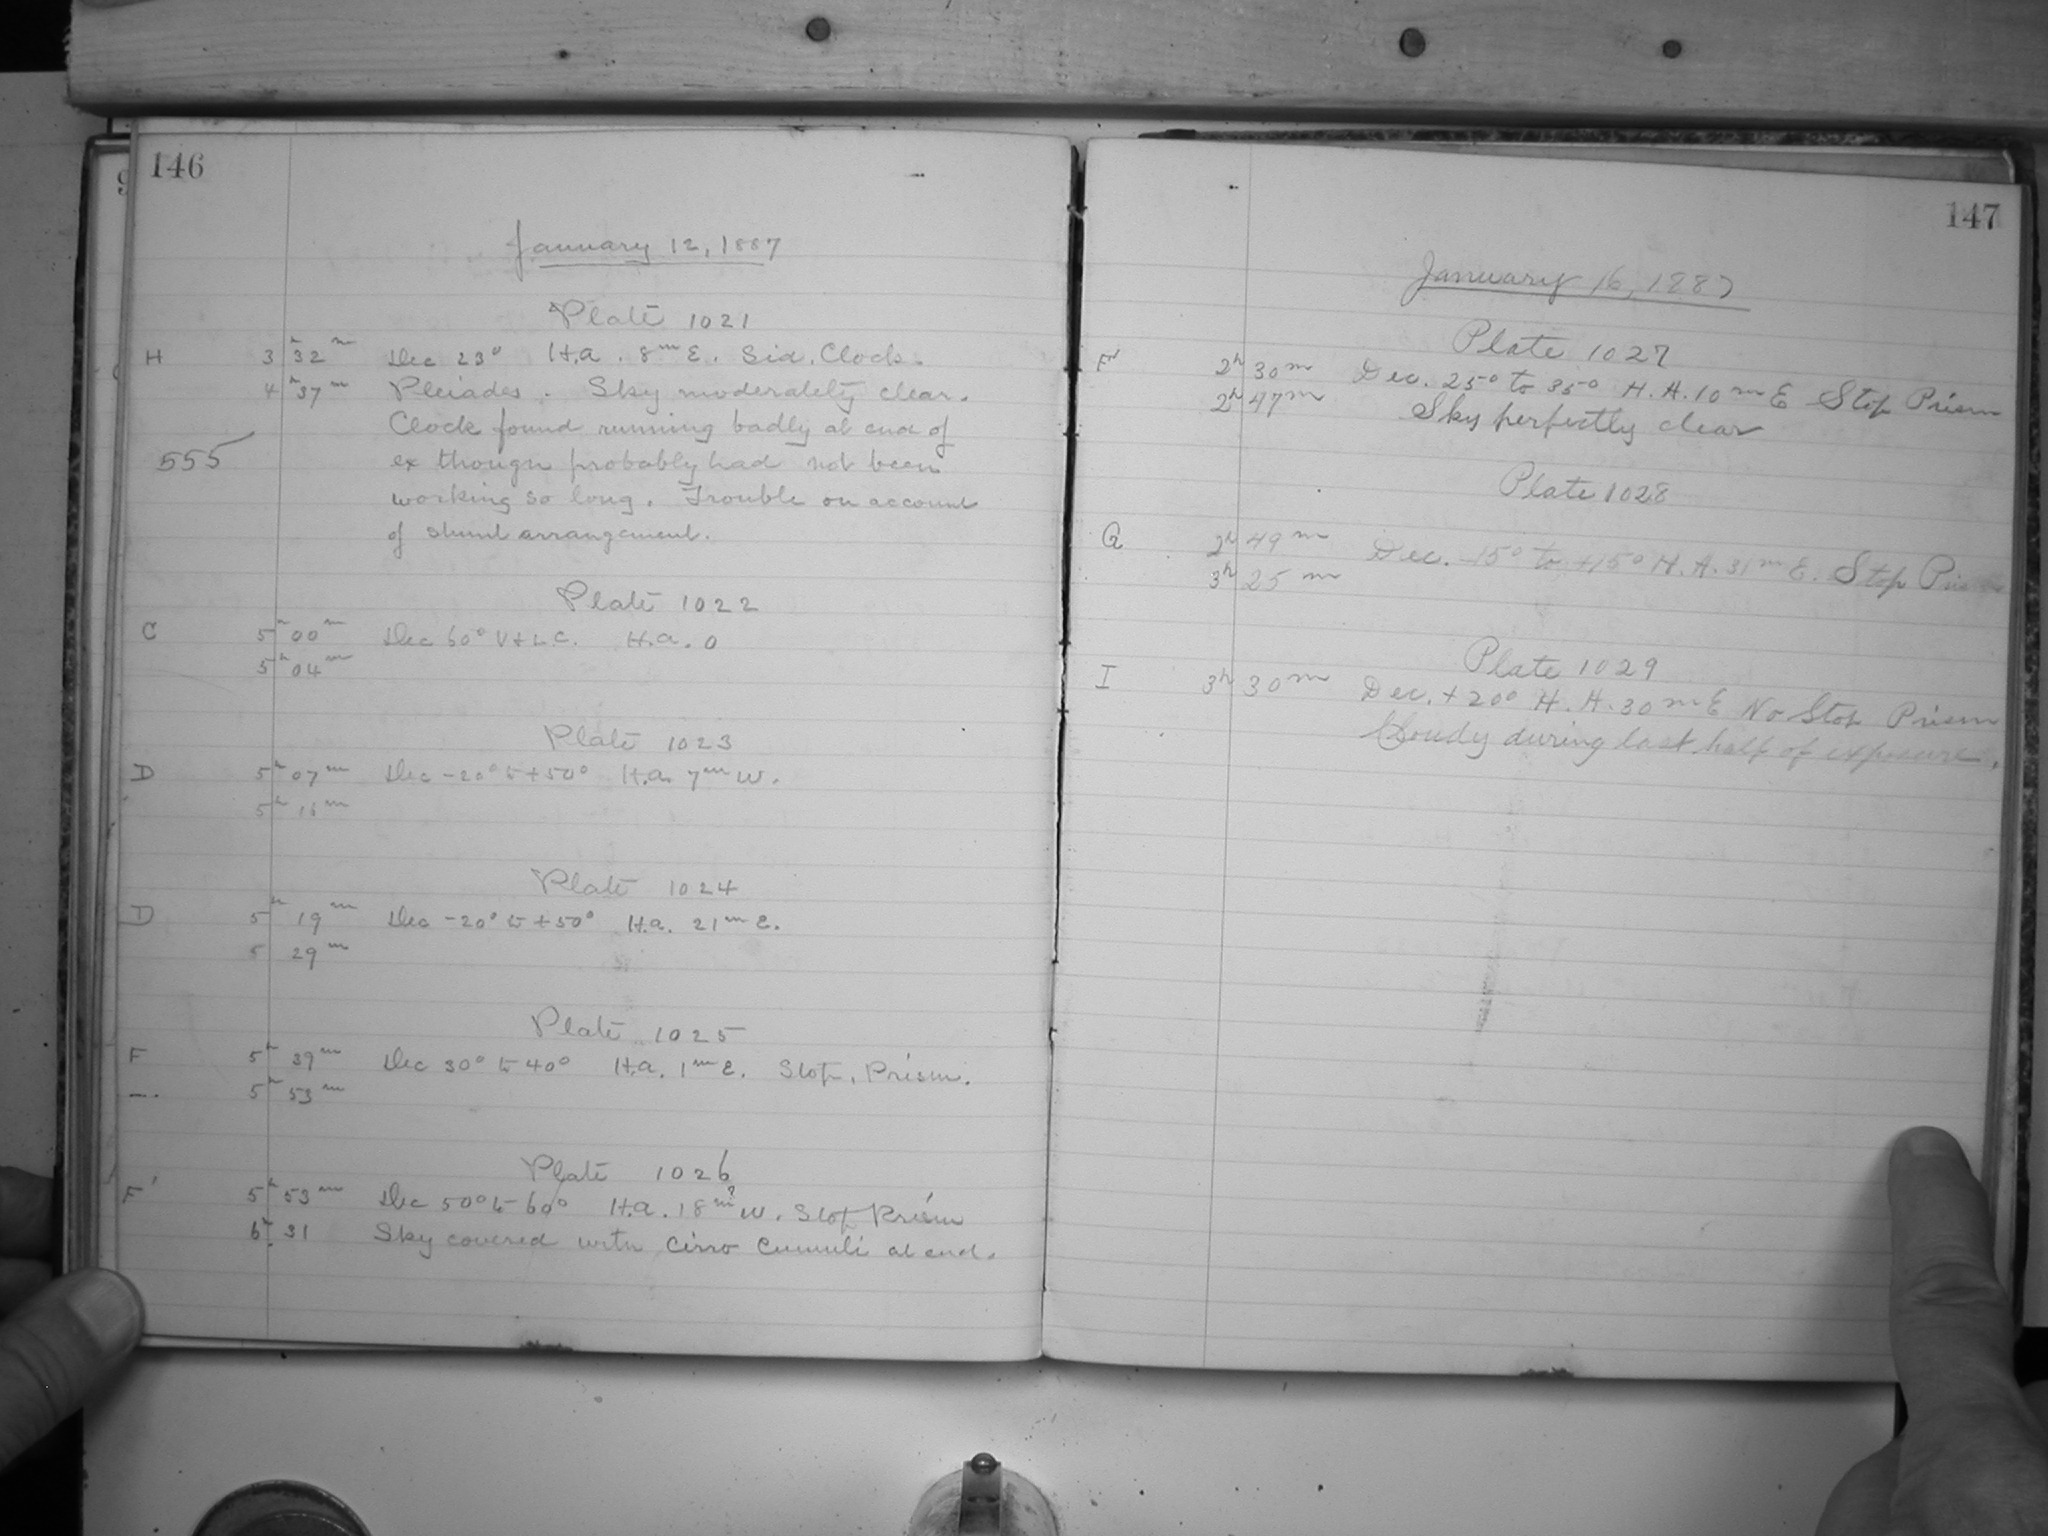 146
January 12, 1887
Plate 1021
H 3h 32m Dec 23° H.a. 8m E. Sid. Clock.
4h 37m Pleiades. Sky moderately clear.
Clock found running badly at end of
555 ex though probably had not been
working so long. Trouble on account
of shunt arrangement.
Plate 1022
C 5h 00m Dec 60° U+L.C. H.a. 0
5h 04m
Plate 1023
D 5h 07m Dec -20° to +50° H.a. 7m W.
5h 16m
Plate 1024
D 5h 19m Dec -20° to +50° H.a. 21m E.
5 29m
Plate 1025
F 5h 39m Dec 30° to 40° H.a. 1m E. Stop, Prism.
5h 53m
Plate 1026
F' 5h 53m Dec 50° to 60° H.a. 18m? W. Stop Prism
6h 31 Sky covered with Cirro Cumuli at end.
147
January 16, 1887
Plate 1027
F' 2h 30m Dec. 25° to 35° H.A. 10m E Stop Prism
2h 47m Sky perfectly clear
Plate 1028
G 2h 49m Dec. -15° to +15° H.A. 31m E. Stop Prism
3h 25m
Plate 1029
I 3h 30m Dec. +20° H.A. 30m E No Stop Prism
Cloudy during last half of exposure.